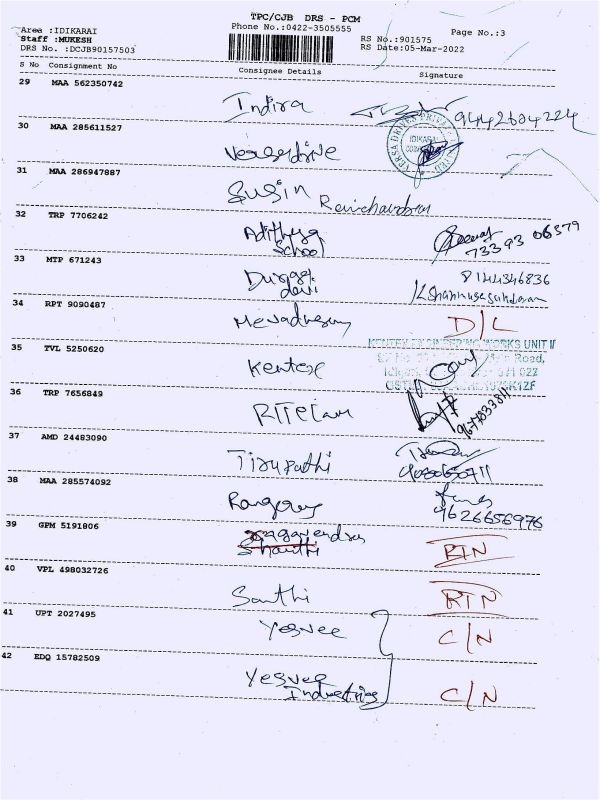 TPC/CJB DRS - PCM
Area :IDIKARAI
Phone No.:0422-3505555
Page No.:3
Staff :MUKESH
RS No.:901575
DRS No. :DCJB90157503
RS Date:05-Mar-2022
S No Consignment No
Consignee Details
Signature
29 MAA 562350742
Indira
9442604224
30 MAA 285611527
31 MAA 286947887
Susin
Ravichandran
32 TRP 7706242
Adithya
School
73393 06379
33 MTP 671243
Durga
Devi
8144346836
34 RPT 9090487
D/L
35 TVL 5250620
KENTEX ENGINEERING WORKS UNIT II
Road,
Kentex
36 TRP 7656849
37 AMD 24483090
Tirupathi
38 MAA 285574092
9626656976
39 GPM 5191806
Shanthi
RTN
40 VPL 498032726
Santhi
RTN
41 UPT 2027495
Yesvee
C/N
42 EDQ 15782509
Yesvee
Industries
C/N